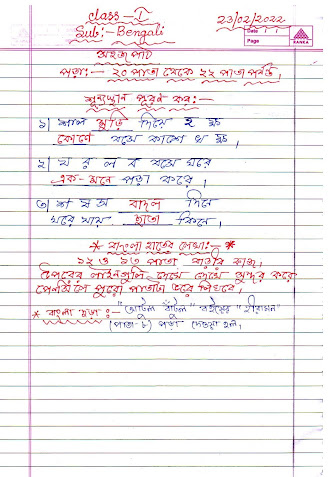 class-I
23/02/2022
Sub:- Bengali
Date
Page
RANKA
সহজ পাঠ
পড়া:— ২০ পাতা থেকে ২২ পাতা পর্যন্ত।
শূন্যস্থান পূরণ কর:—
১) শাল মুড়ি দিয়ে হ ক্ষ
কোণে বসে কাশে খ ক্ষ
২) য র ল ব বসে ঘরে
এক-মনে পড়া করে।
৩) শ ষ স বাদল দিনে
ঘরে যায় ছাতা কিনে।
* বাংলা হাতের লেখা:- *
১২ ও ১৩ পাতা বাড়ির কাজ।
উপরের লাইনগুলি দেখে দেখে সুন্দর করে
পেনসিলে পুরো পাতাটা ভরে লিখবে।
* বাংলা ছড়া:— "আটুল বাঁটুল" বইয়ের "হীরামন"
(পাতা-৮) পড়া দেওয়া হল।